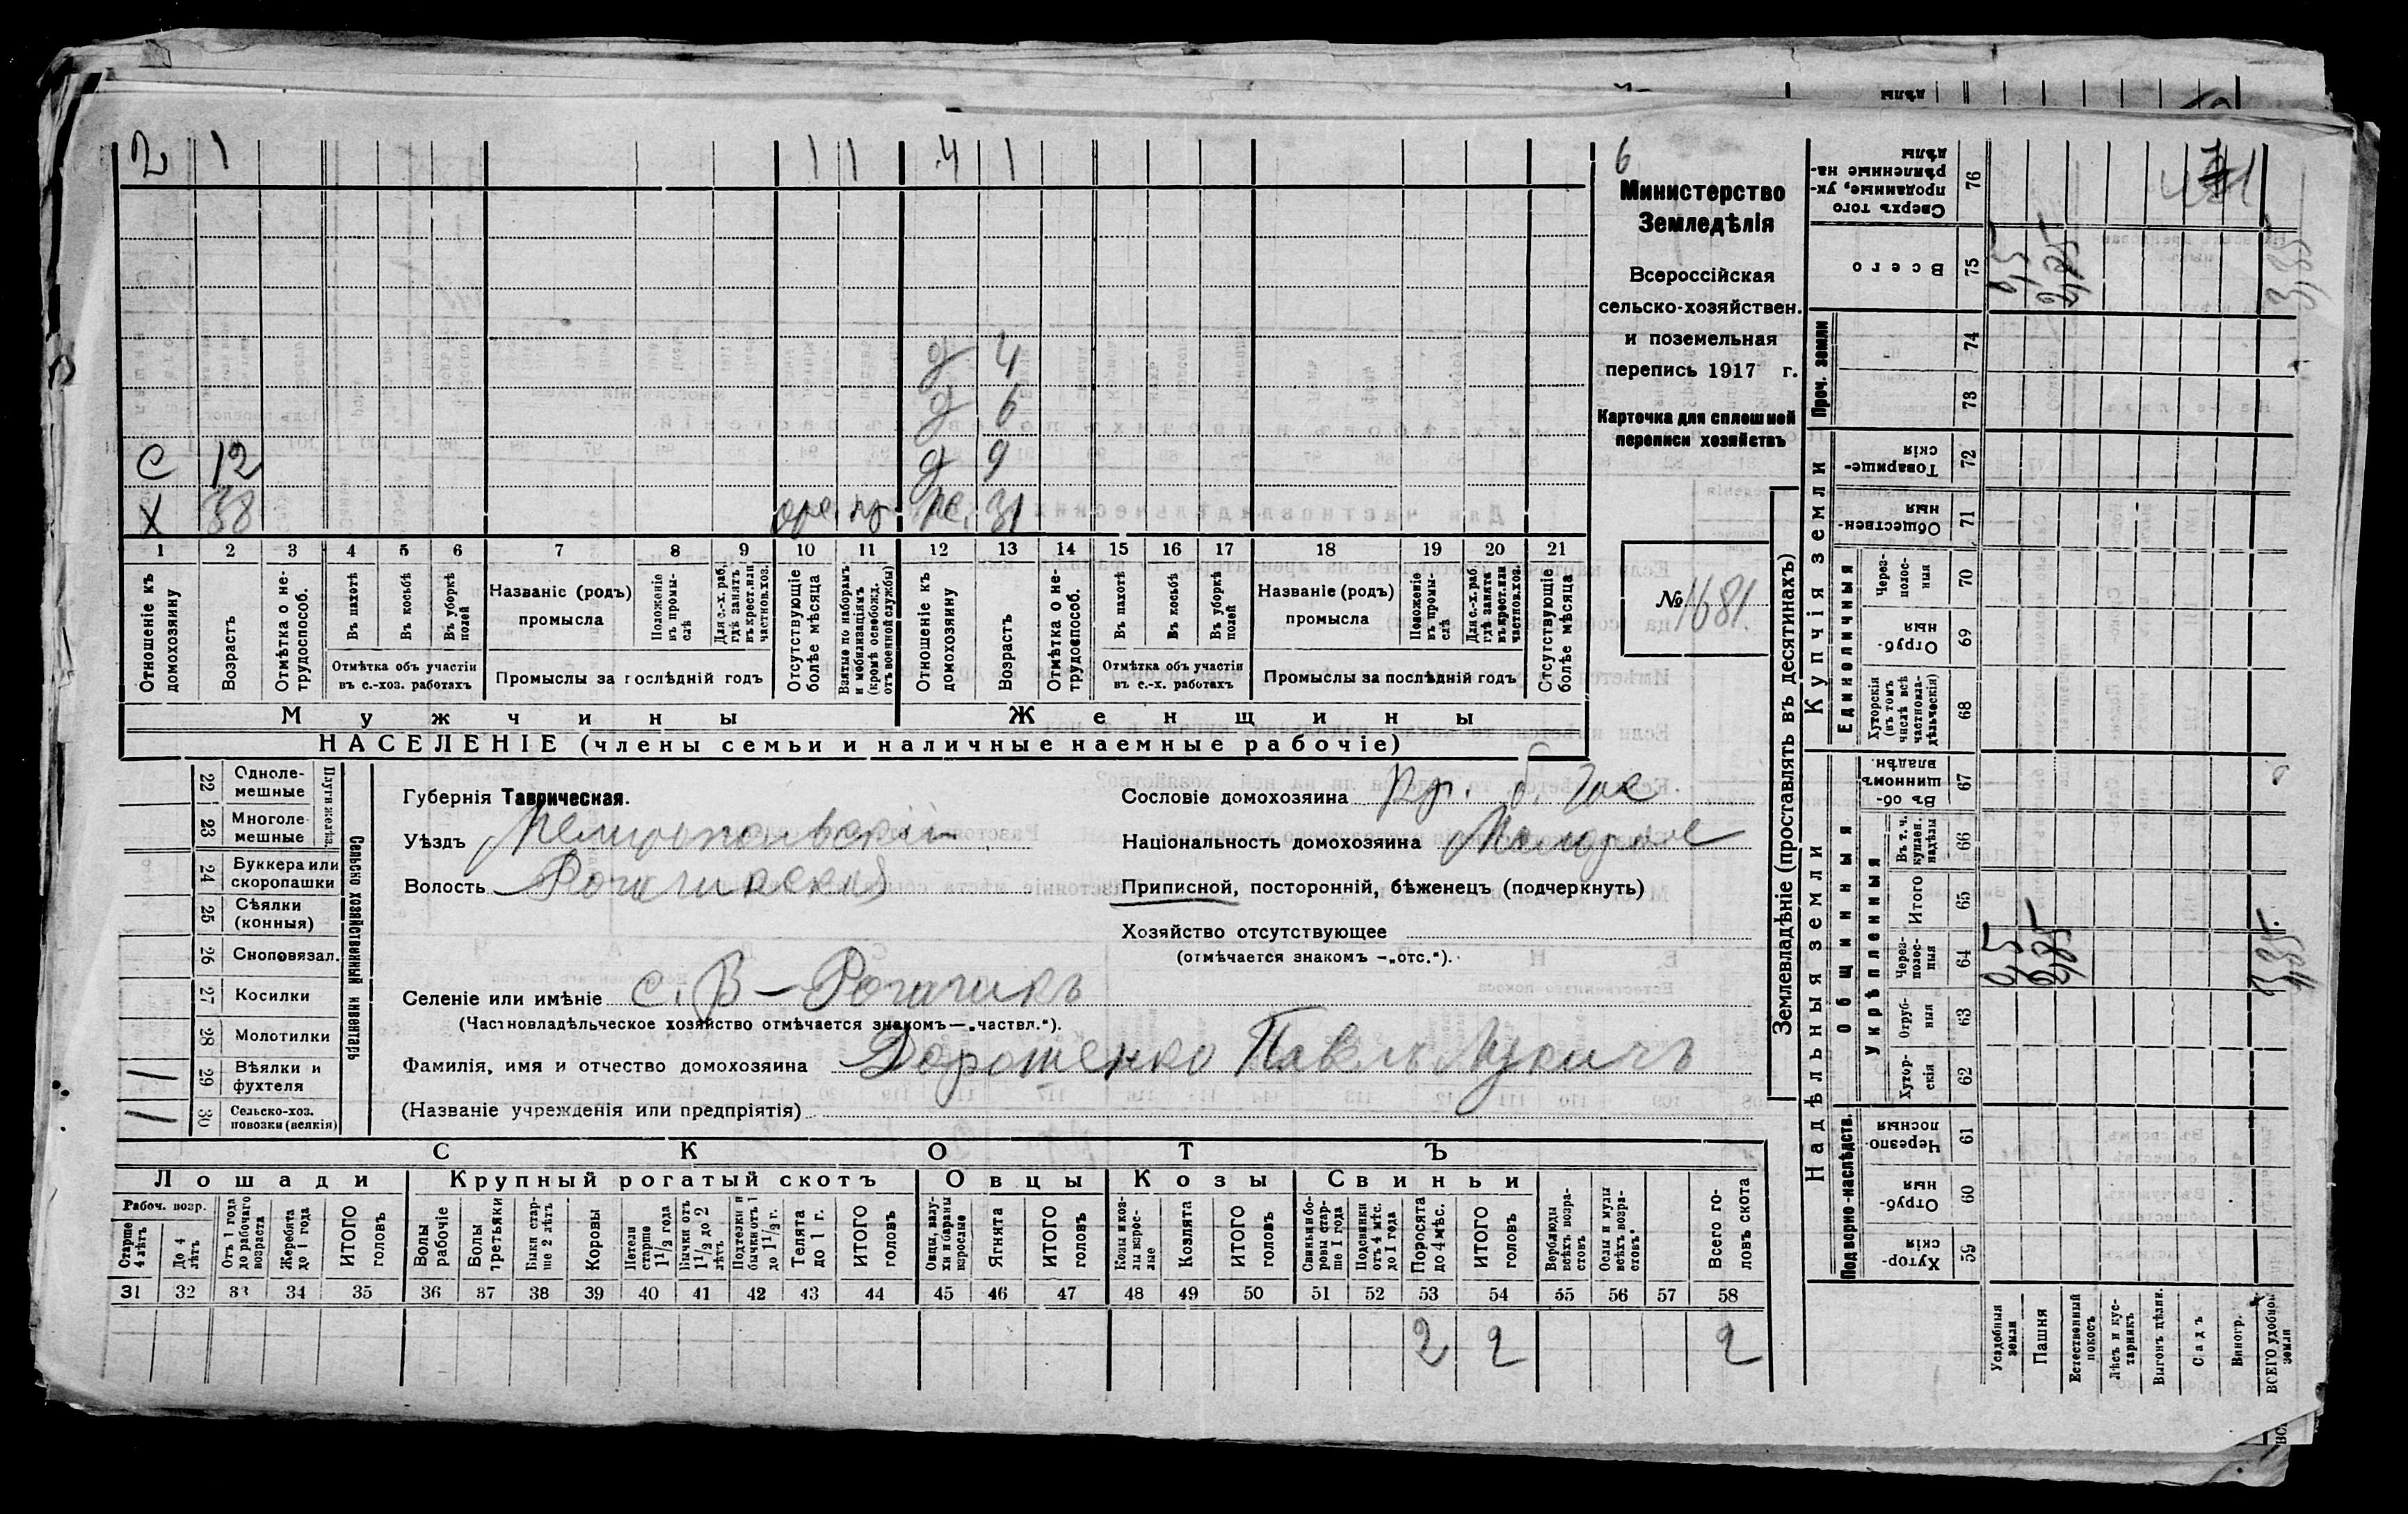 2 1 1 1 4 1
д 4
д 6
С 12 д 9
Х 38 ж. 31
1 2 3 4 5 6 7 8 9 10 11 12 13 14 15 16 17 18 19 20 21
Отношеніе къ домохозяину
Возрастъ
Отмѣтка о не-трудоспособ.
Въ пахотѣ
Въ косьбѣ
Въ уборкѣ полей
Отмѣтка объ участіи
въ с.-хоз. работахъ
Названіе (родъ)
промысла
Положеніе въ промы-слѣ
Для с.-х. раб. гдѣ занятъ въ крест. или частнов. хоз.
Промыслы за послѣдній годъ
Отсутствующіе болѣе мѣсяца
Взятые по наборамъ и мобилизаціямъ (кромѣ освобожд. отъ военной службы)
Отношеніе къ домохозяину
Возрастъ
Отмѣтка о не-трудоспособ.
Въ пахотѣ
Въ косьбѣ
Въ уборкѣ полей
Отмѣтка объ участіи
въ с.-х. работахъ
Названіе (родъ)
промысла
Положеніе въ промы-слѣ
Для с.-х. раб. гдѣ занята въ крест. или частнов. хоз.
Промыслы за послѣдній годъ
Отсутствующіе болѣе мѣсяца
Мужчины
Женщины
НАСЕЛЕНІЕ (члены семьи и наличные наемные рабочіе)
6
Министерство
Земледѣлія
Всероссійская
сельско-хозяйствен.
и поземельная
перепись 1917 г.
Карточка для сплошной
переписи хозяйствъ
№ 1681.
22 Одноле-мешные
23 Многоле-мешные
Плуги желѣз.
24 Буккера или скоропашки
25 Сѣялки (конныя)
26 Сноповязал.
27 Косилки
28 Молотилки
1 29 Вѣялки и фухтеля
1 30 Сельско-хоз. повозки (всякія)
Сельско хозяйственный инвентарь
Губернія Таврическая.
Уѣздъ Мелитопольскій
Волость Рогачикская
Сословіе домохозяина
Національность домохозяина Малорос
Приписной, посторонній, бѣженецъ (подчеркнуть)
Хозяйство отсутствующее
(отмѣчается знакомъ —„отс.“).
Селеніе или имѣніе с. В-Рогачикъ
(Частновладѣльческое хозяйство отмѣчается знакомъ—„частвл.“).
Фамилія, имя и отчество домохозяина Дорошенко Павелъ Лукичъ
(Названіе учрежденія или предпріятія)
СКОТЪ
Лошади
Крупный рогатый скотъ
Овцы
Козы
Свиньи
Рабоч. возр.
Старше 4 лѣтъ
До 4 лѣтъ
Отъ 1 года до рабочаго возраста
Жеребята до 1 года
ИТОГО головъ
Волы рабочіе
Волы третьяки
Быки стар-ше 2 лѣтъ
Коровы
Нетели старше 1½ года
Бычки отъ 1½ до 2 лѣтъ
Подтелки и бычки отъ 1 до 1½ г.
Телята до 1 г.
ИТОГО головъ
Овцы, валу-хи и бараны взрослые
Ягнята
ИТОГО головъ
Козы и коз-лы взрос-лые
Козлята
ИТОГО головъ
Свиньи и бо-ровы стар-ше 1 года
Подсвинки отъ 4 мѣс. до 1 года
Поросята до 4 мѣс.
ИТОГО головъ
Верблюды всѣхъ возра-стовъ
Ослы и мулы всѣхъ возра-стовъ
Всего го-ловъ скота
31 32 33 34 35 36 37 38 39 40 41 42 43 44 45 46 47 48 49 50 51 52 53 54 55 56 57 58
2 2 2
Землевладѣніе (проставлять въ десятинахъ)
Надѣльныя земли
Купчія земли
Проч. земли
Сверхъ того проданные, ук-рѣпленные на-дѣлы 76
Всего 75
74
73
Товарище-скія 72
Обществен-ныя 71
Единоличныя
Через-полос-ныя 70
Отруб-ныя 69
Хуторскія (въ томъ числѣ всѣ частновла-дѣльческія) 68
Общинныя
Въ об-щинномъ владѣн. 67
Укрѣпленныя
Въ т. ч. купчен. надѣлы 66
Итого 65
Через-полос-ныя 64
Отруб-ныя 63
Хутор-скія 62
Подворно-наслѣдств.
Черезпо-лосныя 61
Отруб-ныя 60
Хутор-скія 59
Усадебныя земли
Пашня
Естественный покосъ
Лѣсъ и кус-тарникъ
Выгонъ цѣлин.
Садъ
Виногр.
ВСЕГО удобной земли